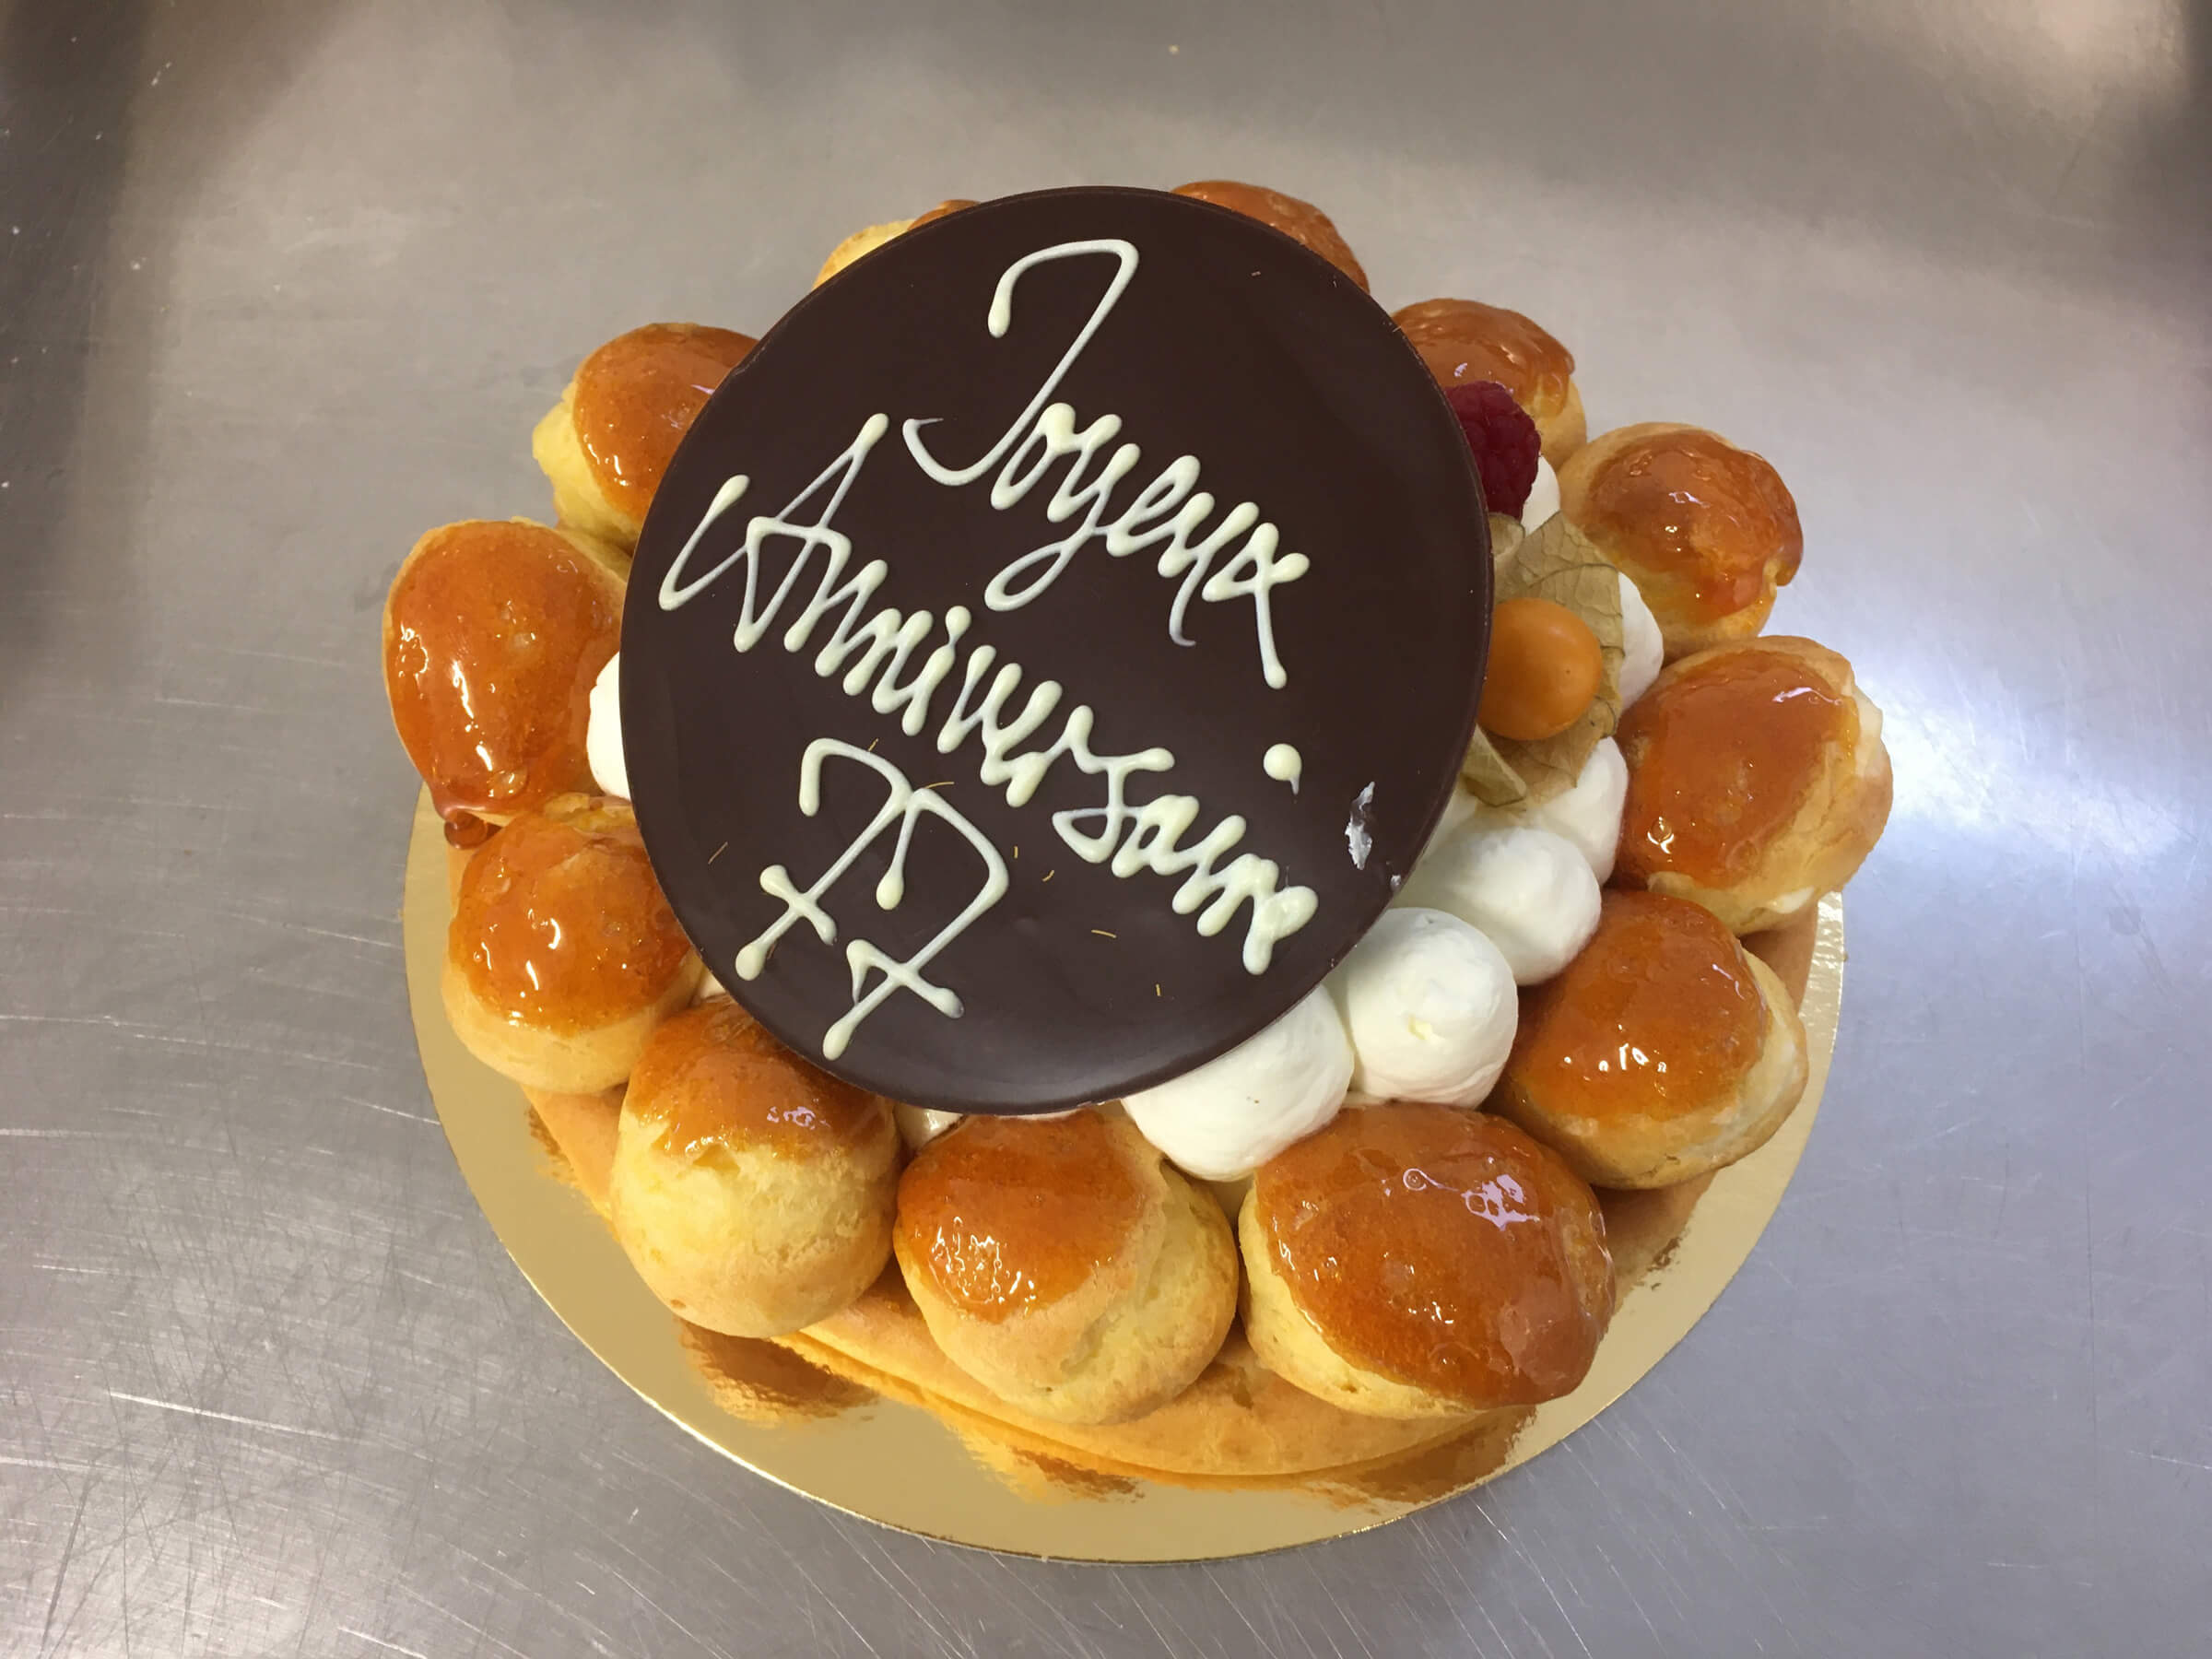 Joyeux
Anniversaire
77